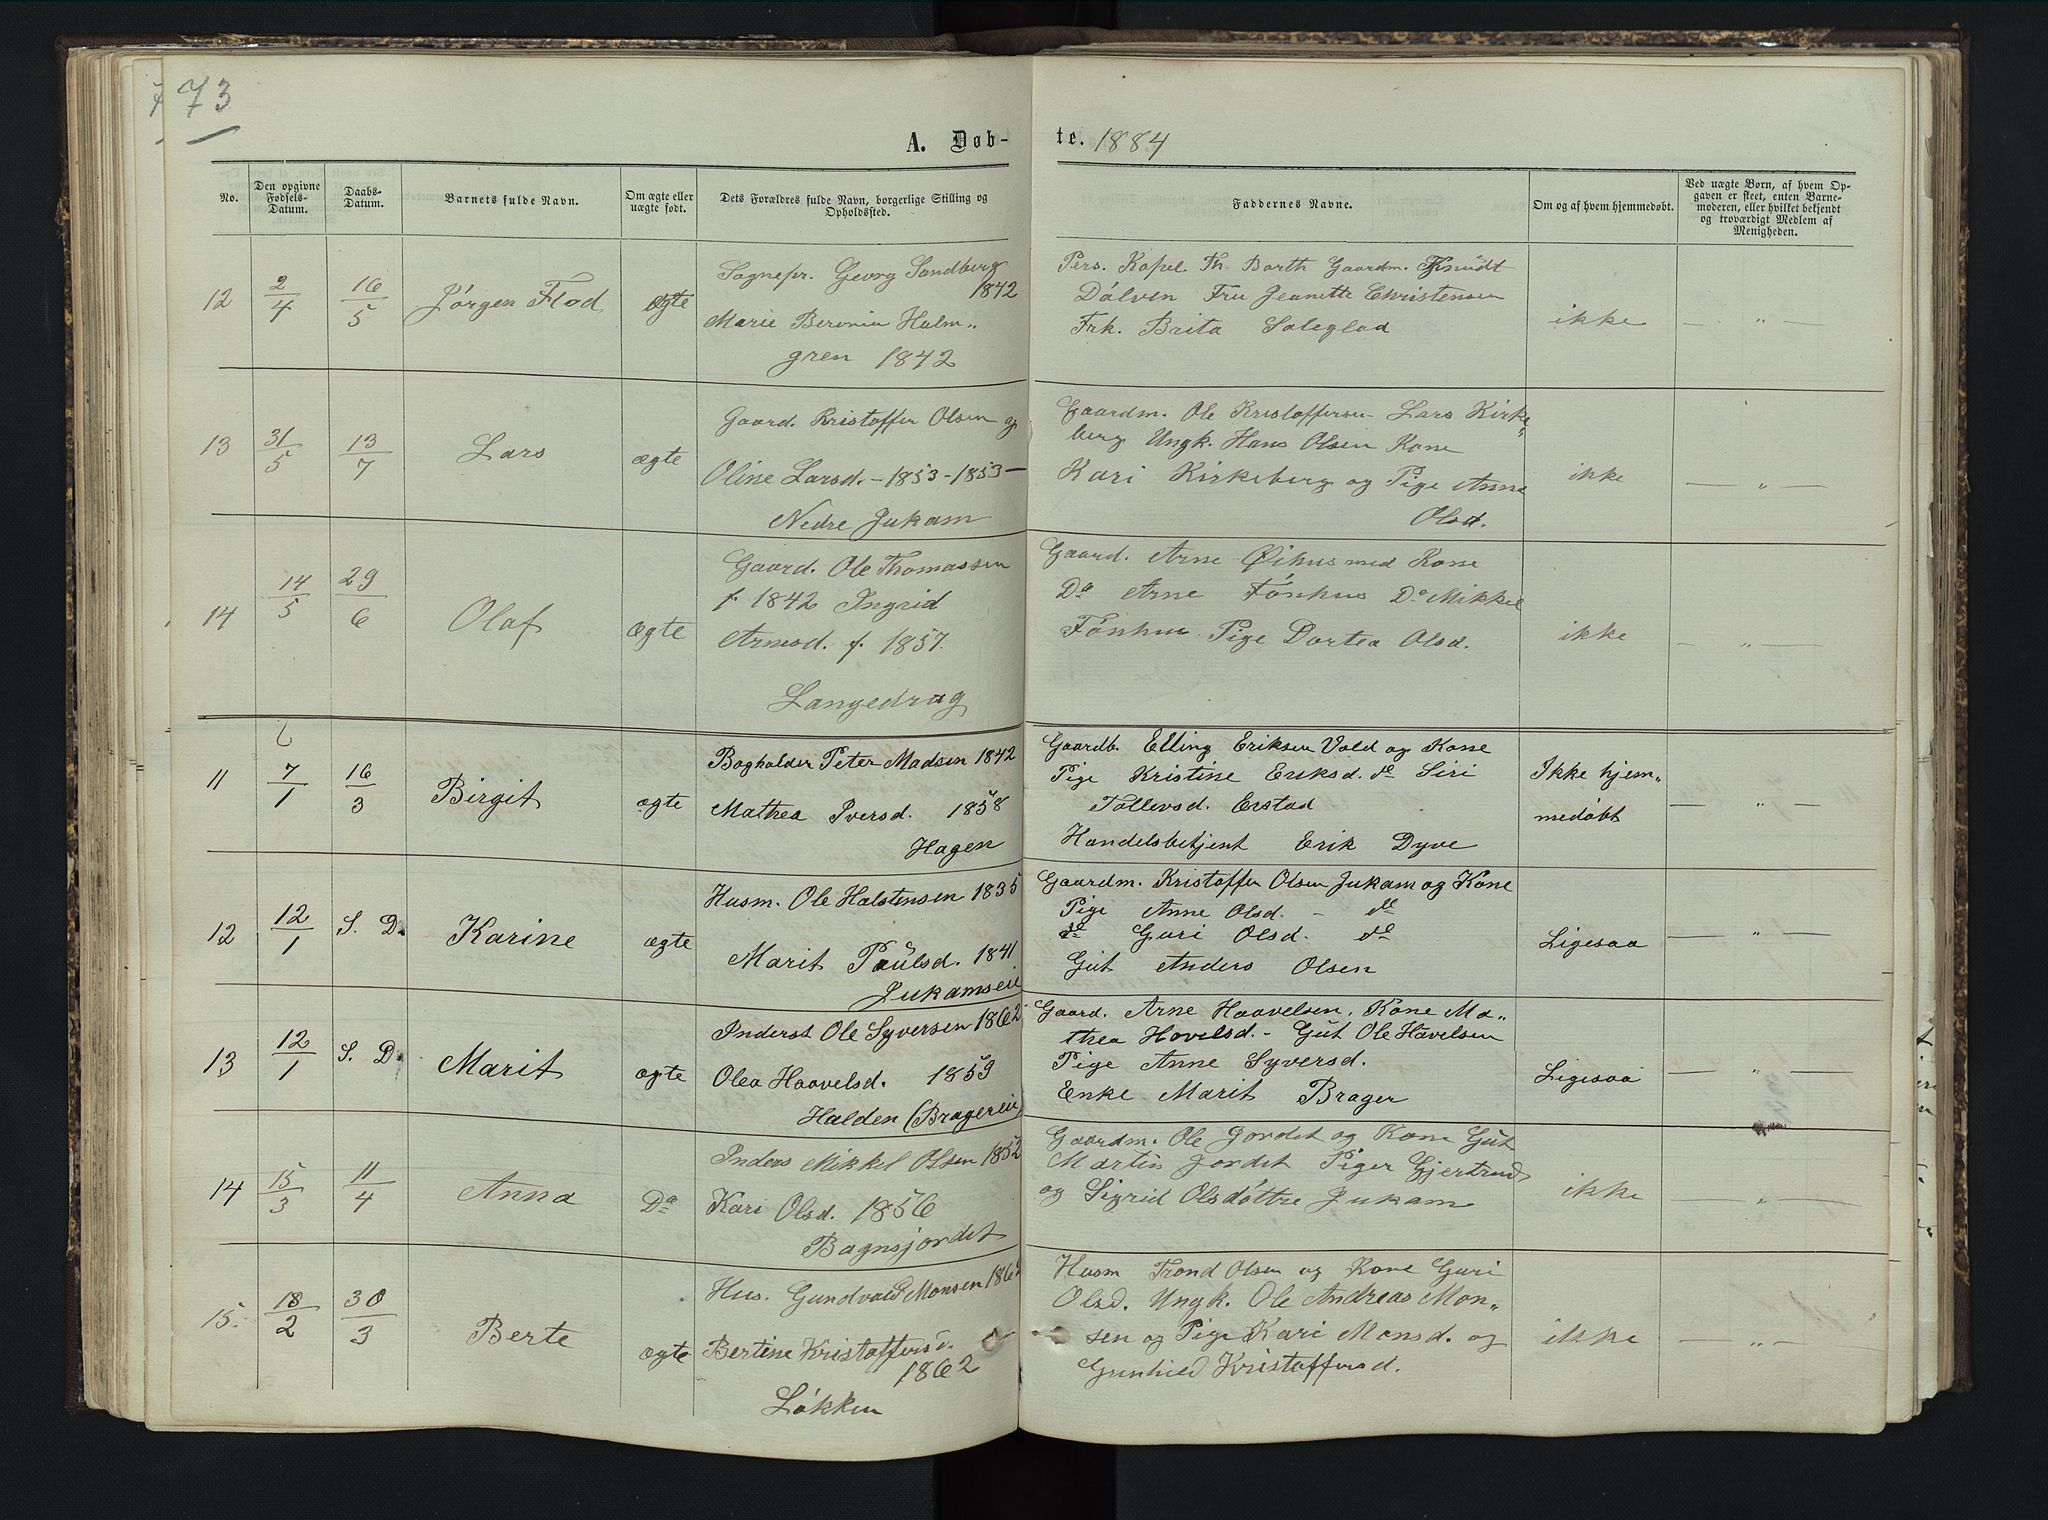 73
A. Døb-
te. 1884
No.
Den opgivne Fødsels-Datum.
Daabs-Datum.
Barnets fulde Navn.
Om ægte eller uægte født.
Dets Forældres fulde Navn, borgerlige Stilling og Opholdssted.
Faddernes Navne.
Om og af hvem hjemmedøbt.
Ved uægte Børn, af hvem Opgaven er skeet, enten Barnemoderen, eller hvilket bekjendt og troværdigt Medlem af Menigheden.
12 2/4 16/5 Jörgen Flod ægte
Sognepr. Georg Sandberg
1842
Marie Beronia Holm„
gren 1842
Pers. Kapel. Th. Barth Gaardm. Knudt
Dölven Fru Jeanette Christensen
Frk. Brita
ikke — „ —
13 31/5 13/7 Lars ægte
Gaard. Kristoffer Olsen og
Oline Larsd. – 1853 – 1853 –
Nedre Jukam
Gaardm. Ole Kristoffersen – Lars Kirke„
berg Ungk. Hans Olsen Kone
Kari Kirkeberg og Pige Anne
Olsd.
ikke — „ —
14 14/5 29/6 Olaf ægte
Gaard. Ole Thomassen
f. 1842 Ingrid
Arnesd. f. 1857.
Langedrag
Gaard. Arne Öihus med Kone
Do Arne Fönhus Do Mikkel
Fönhus Pige Dortea Olsd.
ikke — „ —
11 7/1 16/3 Birgit ægte
Bogholder Peter Madsen 1842
Mathea Iversd. 1858
Hagen
Gaardb. Elling Eriksen Vold og Kone
Pige Kristine Eriksd. do Siri
Tollevsd. Erstad
Handelsbetjent Erik Dyve
Ikke hjem„
medöbt
— „ —
12 12/1 S. D. Karine ægte
Husm. Ole Halstensen 1835
Marit Paulsd. 1841
Jukamseie
Gaardm. Kristoffer Olsen Jukam og Kone
Pige Anne Olsd. – do
do Guri Olsd. do
Gut Anders Olsen
Ligesaa — „ —
13 12/1 S. D. Marit ægte
Inderst Ole Syversen 1862
Olea Haavelsd. 1859
Halden (Bragereie
Gaard. Arne Haavelsen, Kone Ma„
thea Hovelsd. – Gut Ole Havelsen
Pige Anne Syversd.
Enke Marit Brager
Ligesaa — „ —
14 15/3 11/4 Anna Do
Inders Mikkel Olsen 1852
Kari Olsd. 1856
Bagnsjordet
Gaardm. Ole Jordet og Kone Gut
Martin Jordet Piger Gjertrud
og Sigrid Olsdöttre Jukam
ikke „
15. 18/2 30/3 Berte ægte
Hus. Gundvald Monsen 186
Bertine Kristoffersd.
1862
Lökken
Husm Trond Olsen og Kone Guri
Olsd. Ungk. Ole Andreas Mon„
sen og Pige Kari Monsd. og
Gunhild Kristoffersd.
ikke — „ —